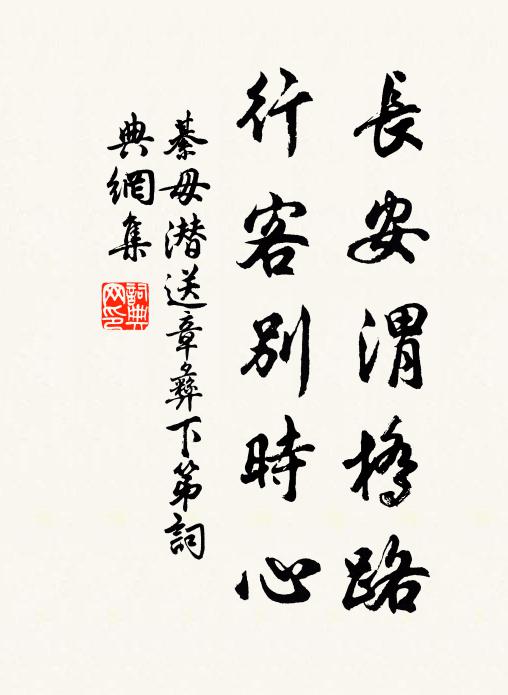 長安渭橋路
行客別時心
綦毋潛送章彝下第詞
典網集
詞典網印